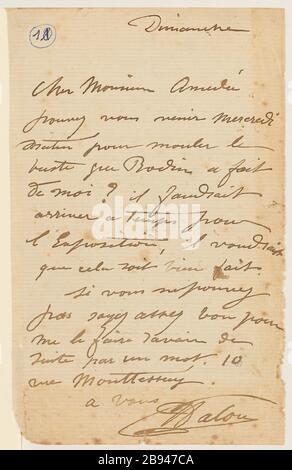 11
Dimanche
Cher Monsieur Amédée
pouvez vous venir mercredi
matin pour mouler le
buste que Rodin a fait
de moi? il faudrait
arriver à temps pour
l'Exposition, il voudrait
que cela soit bien fait.
Si vous ne pouvez
pas soyez assez bon pour
me le faire savoir de
suite par un mot. 10
rue Monttessuy
a vous
Dalou
alamy
Image ID: 2B947CA
www.alamy.com